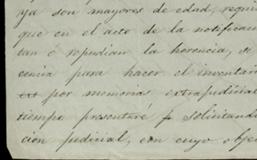 ya son mayores de edad, requi
que en el acto de la notifican
tan ó repudian la herencia, se
cencia para hacer el inventar
por memorias extrajudicial
tiempo presentaré solicitando
cion judicial, con cuyo obje